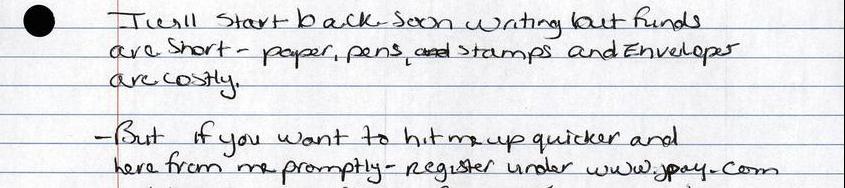 I will start back soon writing but funds
are short - paper, pens, and stamps and Envelopes
are costly.
-But if you want to hit me up quicker and
here from me promptly - register under www.jpay.com